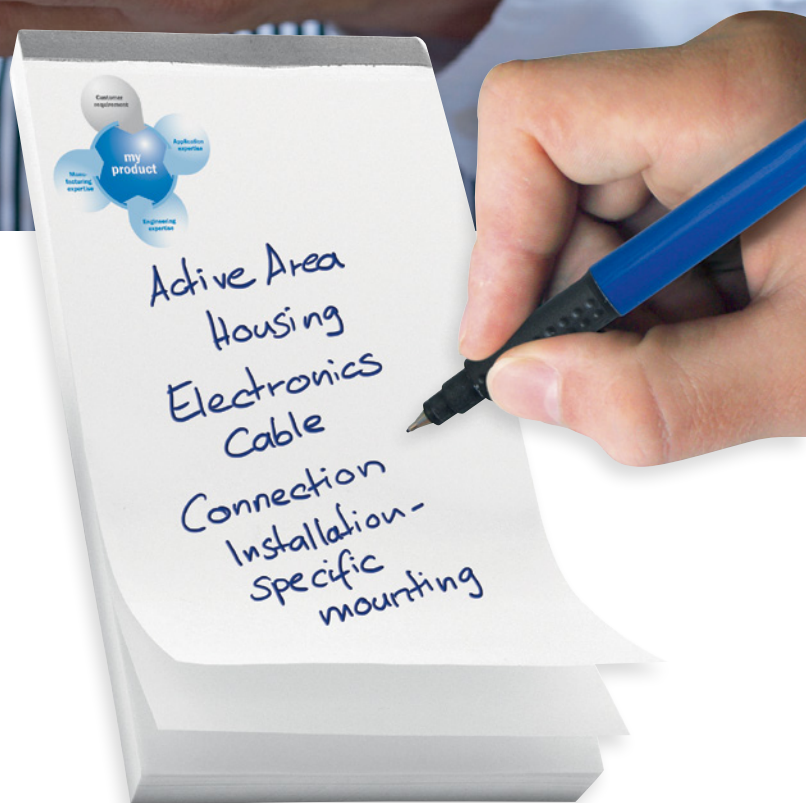 Customer
requirement
Application
expertise
my
product
Manu-
facturing
expertise
Engineering
expertise
Active Area
Housing
Electronics
Cable
Connection
Installation-
specific
mounting